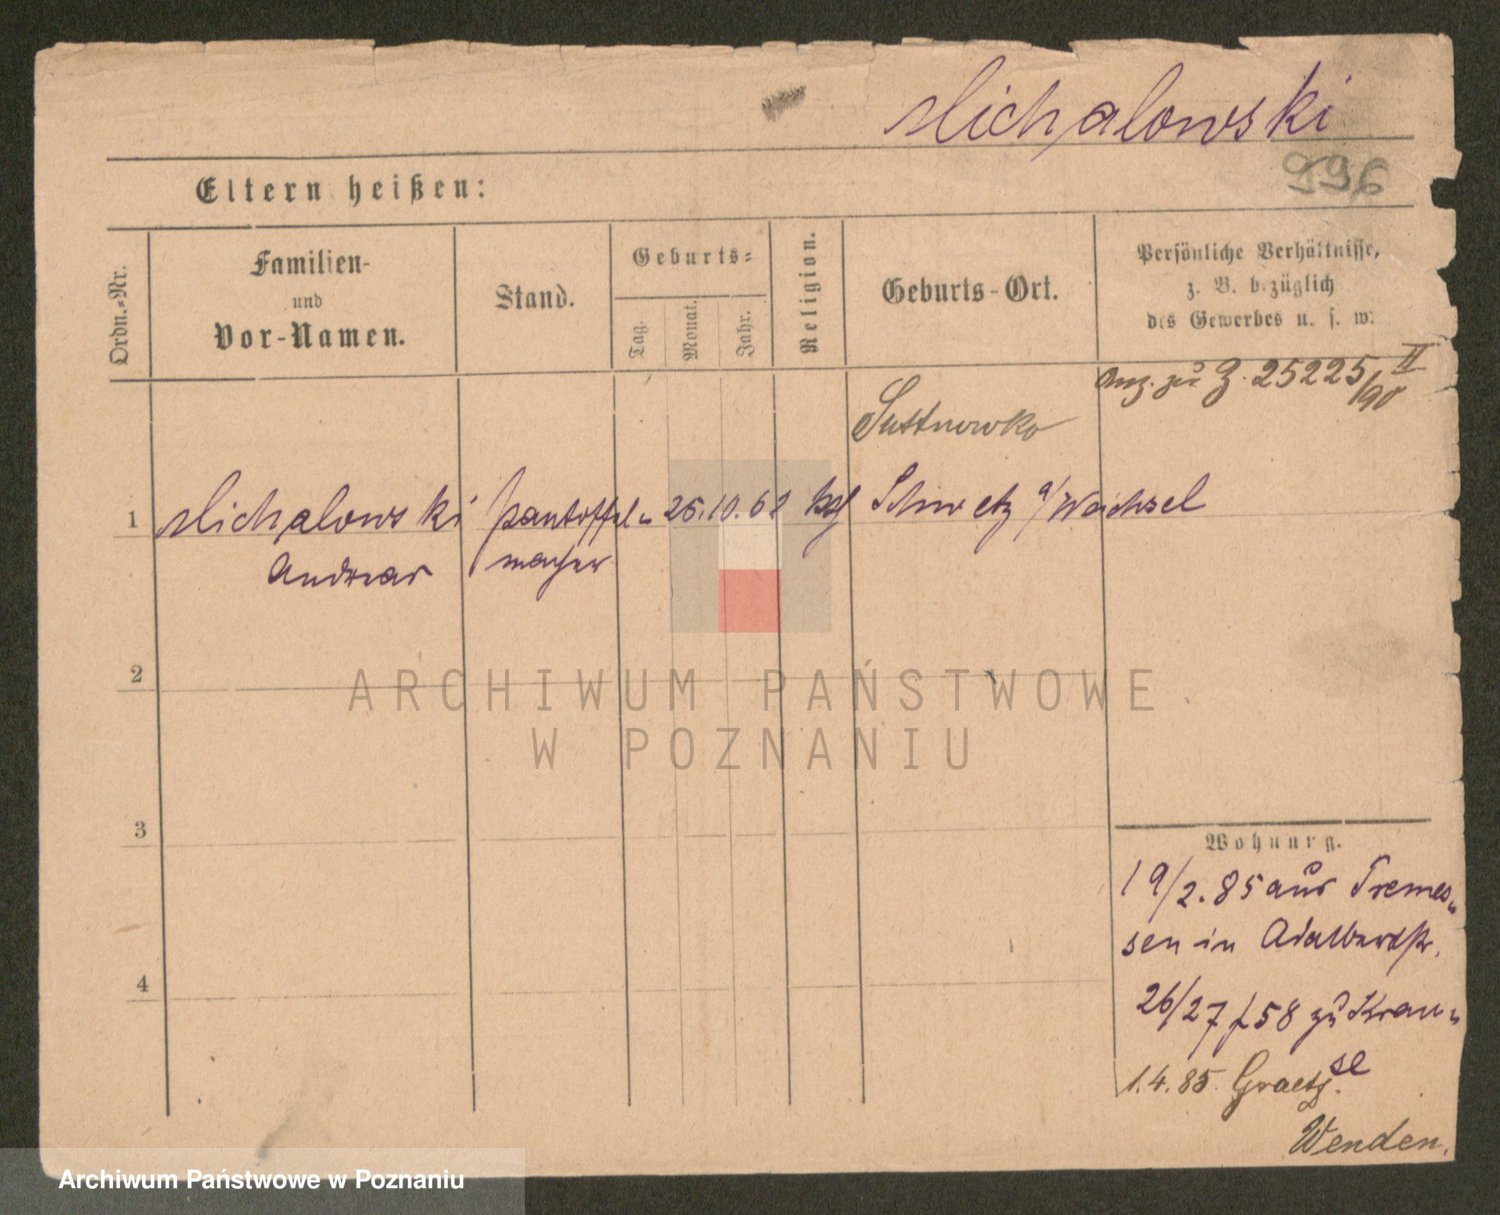 Michalowski
996
Eltern heißen:
Ordn.-Nr.
Familien-
und
Vor-Namen.
Stand.
Geburts-
Tag.
Monat.
Jahr.
Religion.
Geburts-Ort.
Persönliche Verhältnisse,
z. B. bezüglich
des Gewerbes u. s. w.
Anz. zu Z. 25225/90 II
1
Michalowski
Andreas
Pantoffel-
macher
26. 10. 62
kth
Schwetz a/Weichsel
2
3
4
Wohnung.
19/2. 85 aus Tremes-
sen in Adalbertstr.
26/27 f 58 zu Krau-
se
1. 4. 85. Graetz.
Wenden.
ARCHIWUM PAŃSTWOWE
W POZNANIU
Archiwum Państwowe w Poznaniu